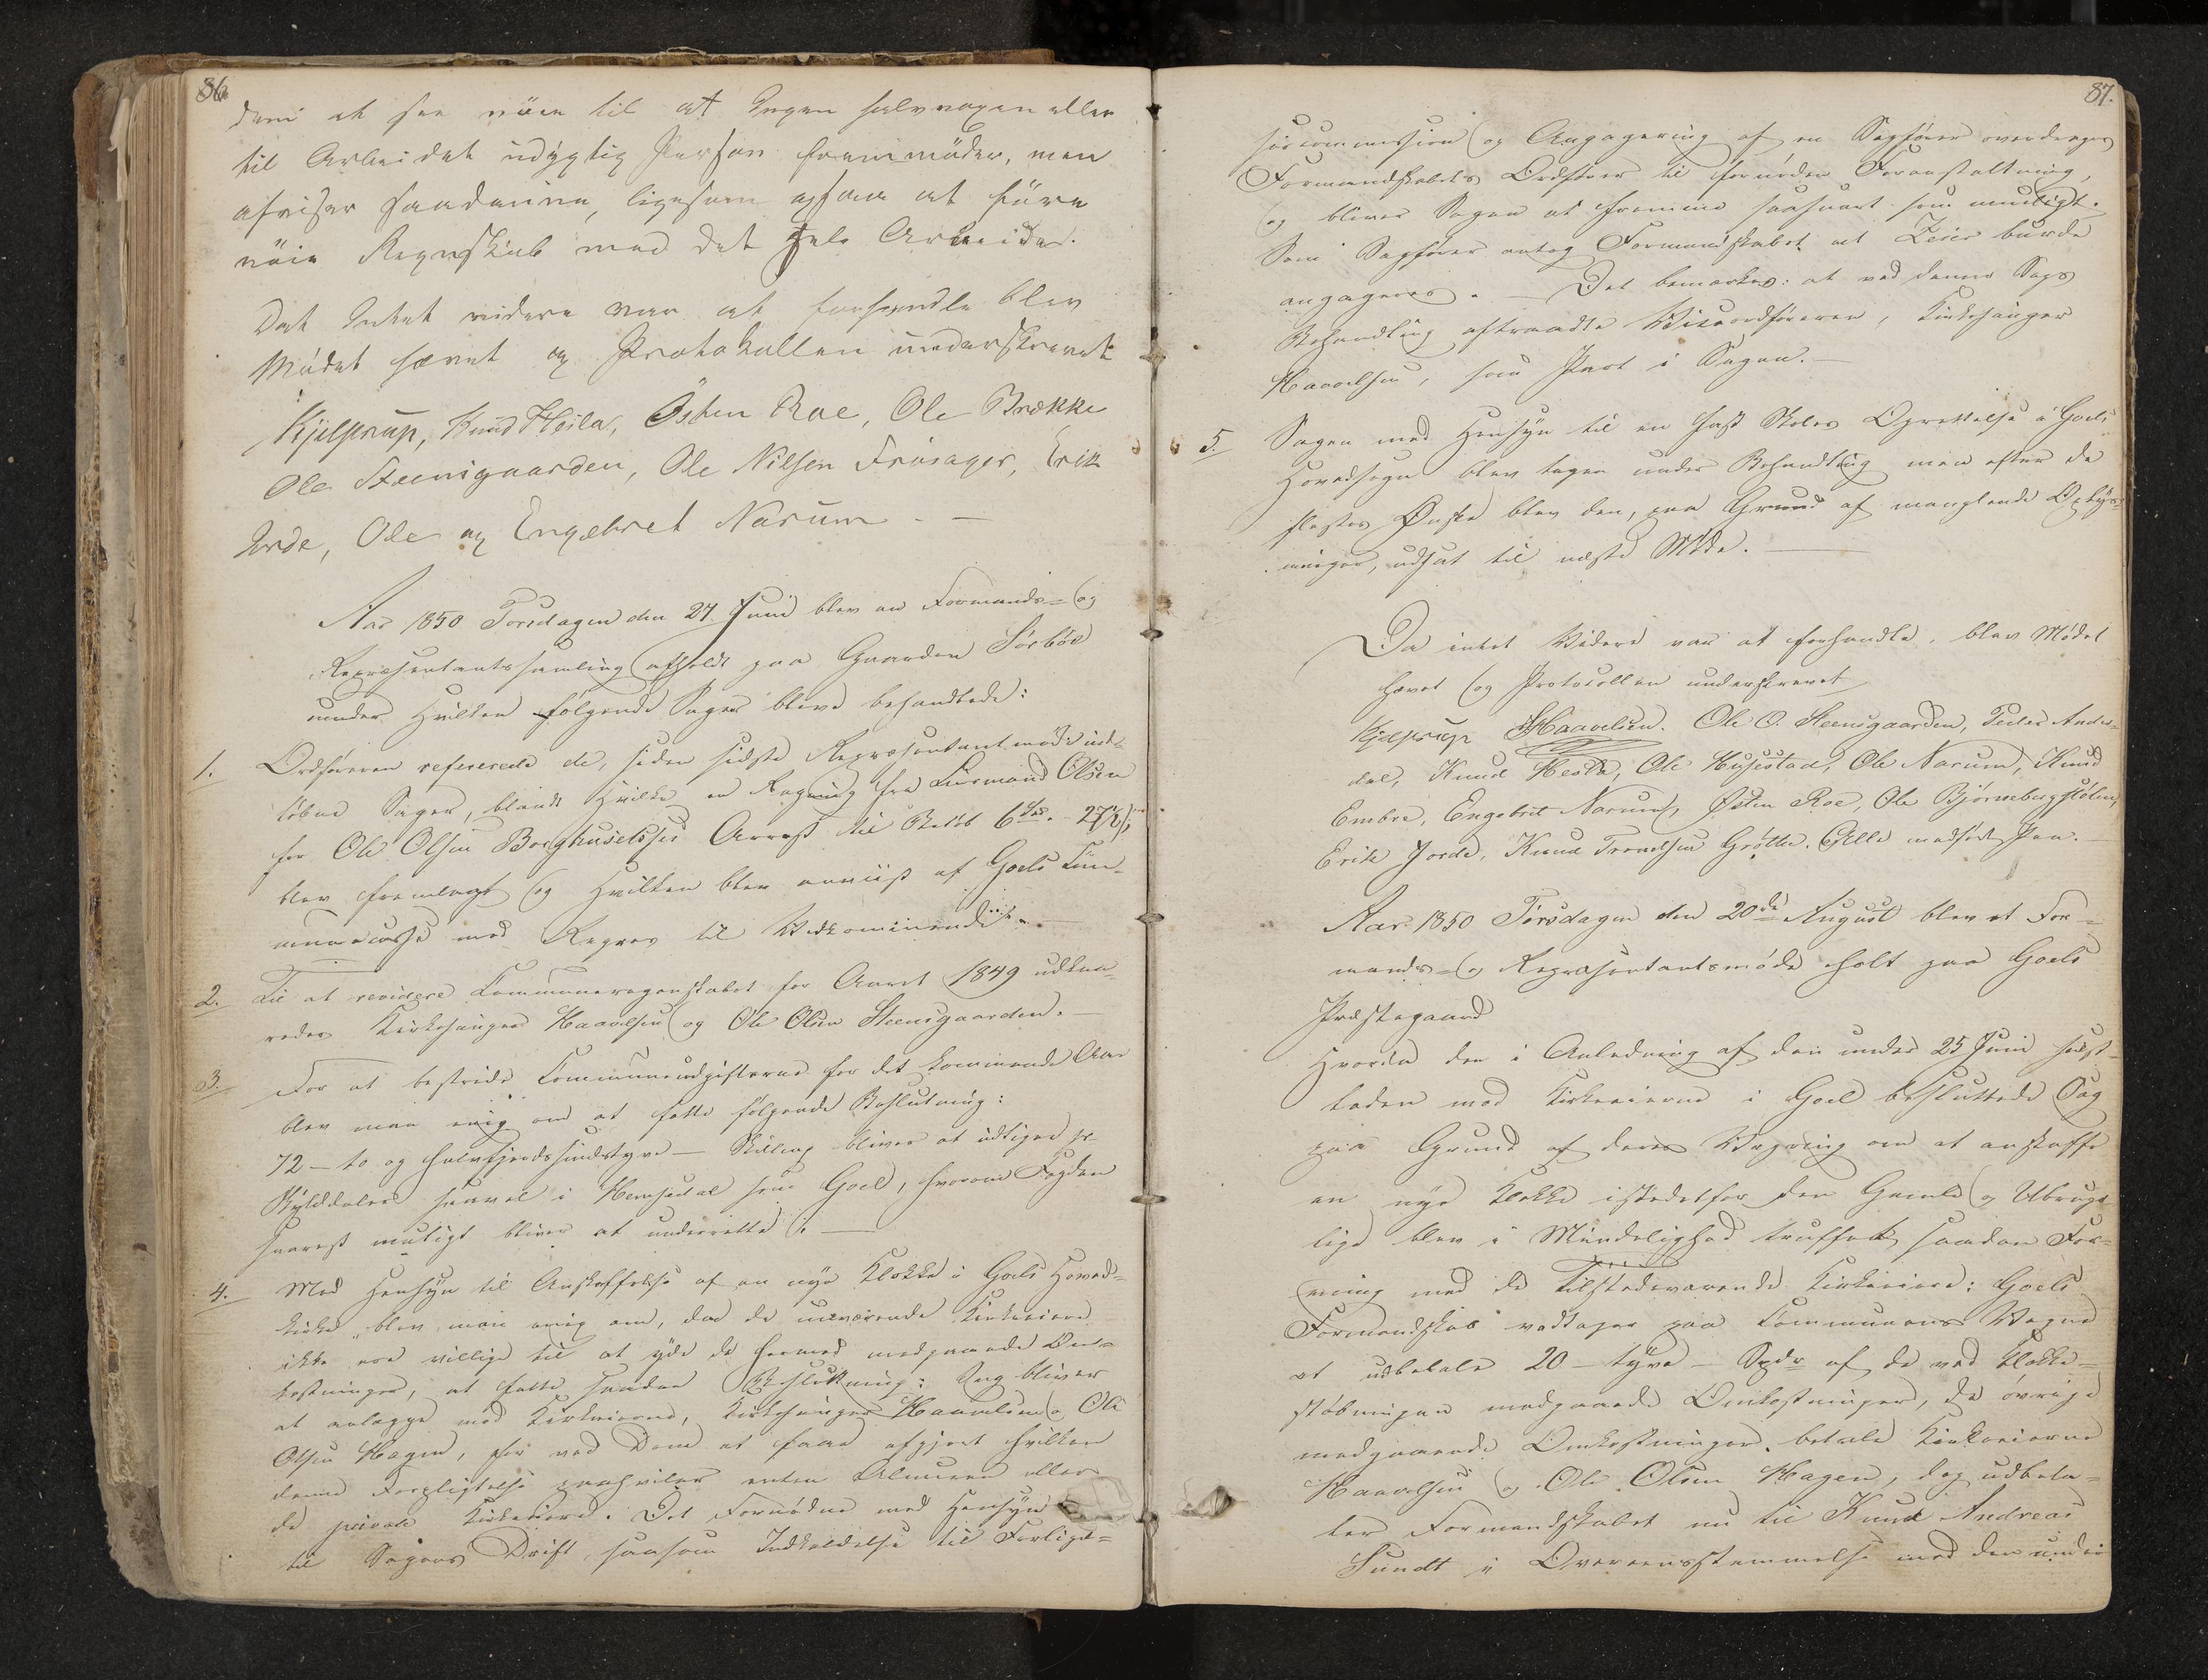 86
dem at see nöie til at Ingen halvvoxen eller
til Arbeidet udygtig Person fremmöder, men
afviser saadanne, ligesom ogsaa at före
nöie Regnskab med det hele Arbeide.
Dat Intet videre var at forhandle blev
Mödet hævet og Protokollen underskrevet
Kjelstrup, Knud Hesla, Östen Roe, Ole Brække
Ole Steensgaarden, Ole Nilsen Frøsager, Erik
Jorde, Ole og Engebret Narum. —
Aar 1850 Torsdagen den 27 Juni blev en Formands- og
Repræsentantsamling afholdt paa Gaarden Sørbøe
under Hvilken følgende Sager bleve behandlede:
1. Ordføreren refererede de, siden sidste Repræsentantmøde ind-
løbne Sager, blandt Hvilke en Regning fra Lensmand Olsen
for Ole Olsen Borghusets Arrest til Beløb 6 27½
blev fremlagt og Hvilken blev anviist af Goels Kom-
munecasse med Regres til Vedkommende.
2. Til at revidere Communeregnskabet for Aaret 1849 udkaa-
redes Kirkesanger Haavelsen og Ole Olsen Steensgaarden.
3. For at bestride Communeudgifterne for det kommende Aar
blev man enig om at fatte følgende Beslutning:
72 – to og halvfjerdsindstyve – Skilling bliver at udligne pr.
Skylddaler saavel i Hemsedal som Goel, hvorom Fogden
snarest muligt bliver at underrette. —
4. Med Hensyn til Anskaffelse af en nye Klokke i Goels Hoved-
kirke, blev man enig om, da de nuværende Kirkeeiere
ikke ere villige til at yde de hermed medgaaende Om-
kostninger, at fatte saadan Beslutning: Sag bliver
at anlægge mod Kirkeeierne, Kirkesanger Haavelsen og Ole
Olsen Hagen, for ved Dom at faae afgjort hvilken
denne Forpligtelse paahviler enten Almuen eller
de private Kirkeeiere. Det Fornødne med Hensyn
til Sagens Drift, saasom Indkaldelse til Forligel-
87.
sescommission og Engagering af en Sagfører overdrages
Formandskabets Ordfører til fornøden Foranstaltning,
og bliver Sagen at fremme saasnart som muligt.
Som Sagfører antog Formandskabet at Zeier burde
engageres. — Det bemærkes: at ved denne Sags
Behandling aftraadte Viceordføreren, Kirkesanger
Haavelsen, som Part i Sagen. —
5. Sagen med Hensyn til en fast Skoles Oprettelse i Goels
Hovedsogn blev tagen under Behandling men efter de
flestes Ønske blev den, paa Grund af manglende Oplys-
ninger, udsat til næste Møde. —
Da intet Videre var at forhandle, blev Mødet
hævet og Protocollen underskrevet
Kjelstrup Haavelsen. Ole O. Steensgaarden, Peder Anders-
dal, Knud Hesla, Ole Husestad, Ole Narum, Knud
Embre, Engebret Narum, Østen Roe, Ole Bjørnebergstølen,
Erik Jorde, Knud Trondsen Grøtte. Alle med ført Pen. —
Aar 1850 Torsdagen den 20de August blev et For-
mands- og Repræsentantsmøde holt paa Goels
Præstegaard
Hvorda den i Anledning af den under 25 Juni
mod Kirkeeierne i Goel besluttede Sag
paa Grund af deres Vægring om at anskaffe
en nye Klokke istedetfor den Gamle og Ubruge-
lige blev i Mindelighed truffet saadan For-
ening med de tilstedeværende Kirkeeiere: Goels
Formandskab vedtager paa Communens Vegne
at udbetale 20 – tyve – Spdr af de ved Klokke-
støbningen medgaaende Omkostninger, de øvrige
medgaaende Omkostninger betale Kirkeeierne
Haavelsen og Ole Olsen Hagen, dog udbeta-
ler Formandskabet nu til Knud Andreas
Sundt i Overeensstemmelse med den under